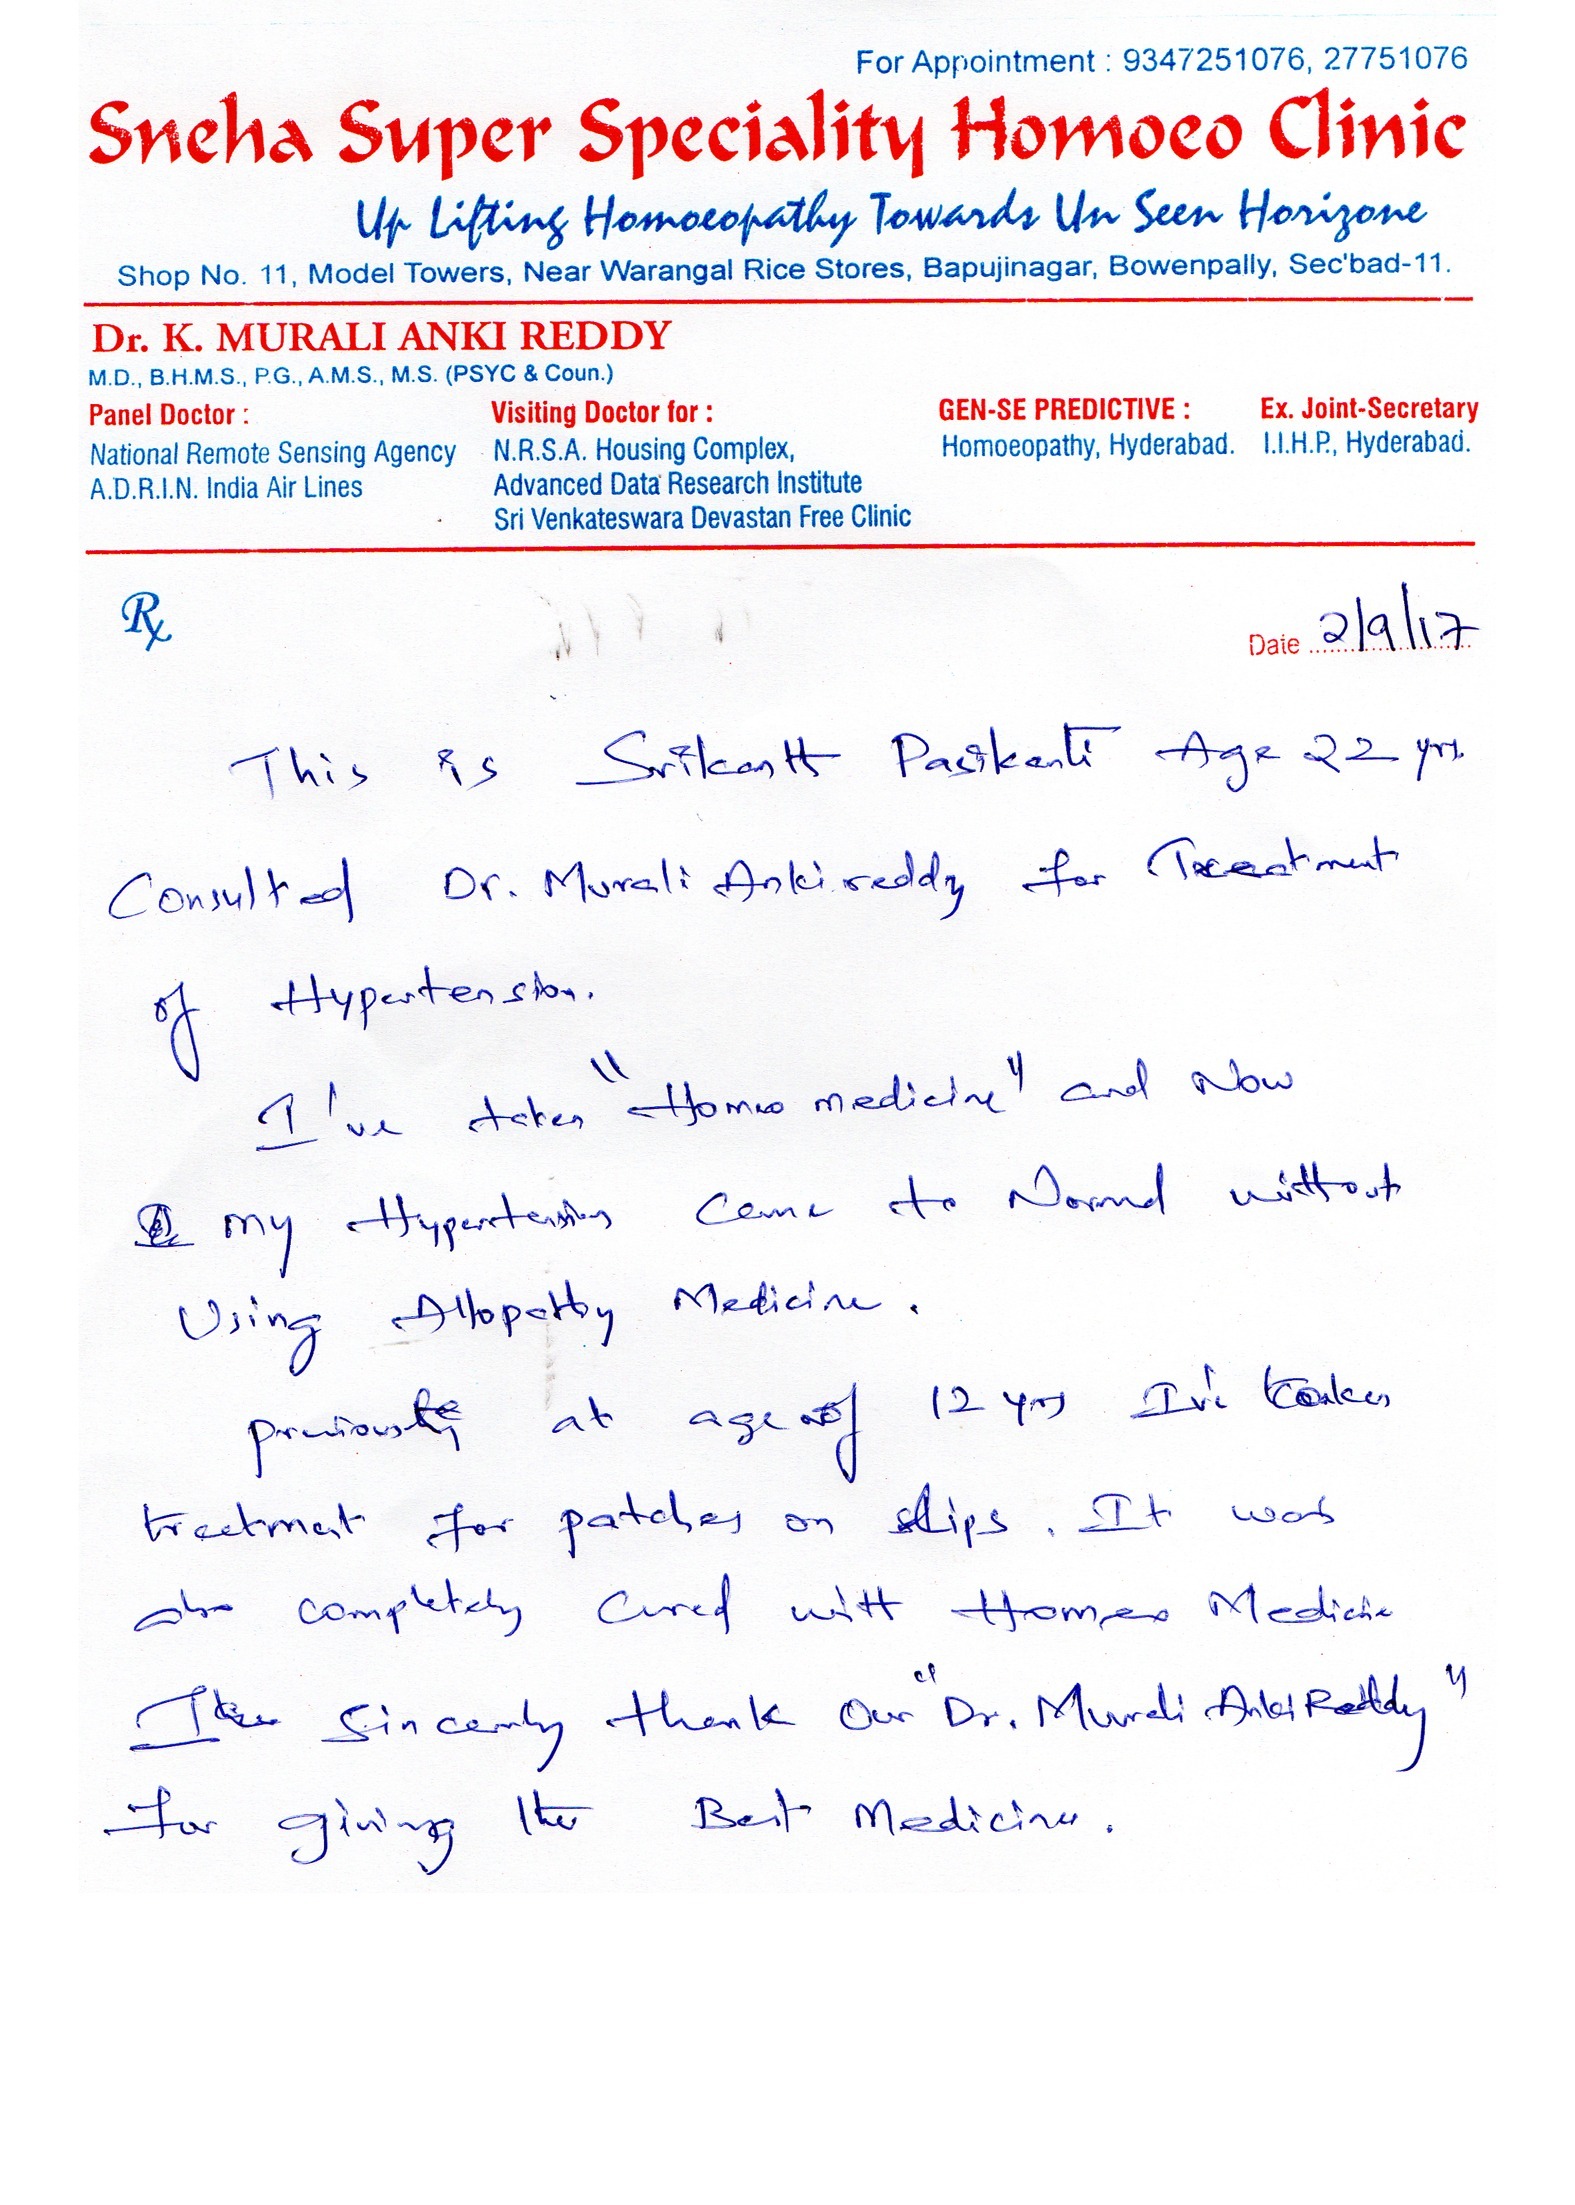 For Appointment : 9347251076, 27751076
Sneha Super Speciality Homoeo Clinic
Up Lifting Homoeopathy Towards Un Seen Horizone
Shop No. 11, Model Towers, Near Warangal Rice Stores, Bapujinagar, Bowenpally, Sec'bad-11.
Dr. K. MURALI ANKI REDDY
M.D., B.H.M.S., P.G., A.M.S., M.S. (PSYC & Coun.)
Panel Doctor : Visiting Doctor for : GEN-SE PREDICTIVE : Ex. Joint-Secretary
National Remote Sensing Agency N.R.S.A. Housing Complex, Homoeopathy, Hyderabad. I.I.H.P., Hyderabad.
A.D.R.I.N. India Air Lines Advanced Data Research Institute
Sri Venkateswara Devastan Free Clinic
Rx
Date 2/9/17
This is Srikanth Pasikanti Age 22 yrs.
Consulted Dr. Murali Ankireddy for Treatment
of Hypertension.
I've taken "Homeo medicine" and Now
my Hypertension came to Normal without
Using Allopathy Medicine.
previously at age of 12 yrs I've taken
treatment for patches on lips. It was
also completely cured with Homeo Medicine
I sincerely thank Our "Dr. Murali AnkiReddy"
for giving the Best Medicine.